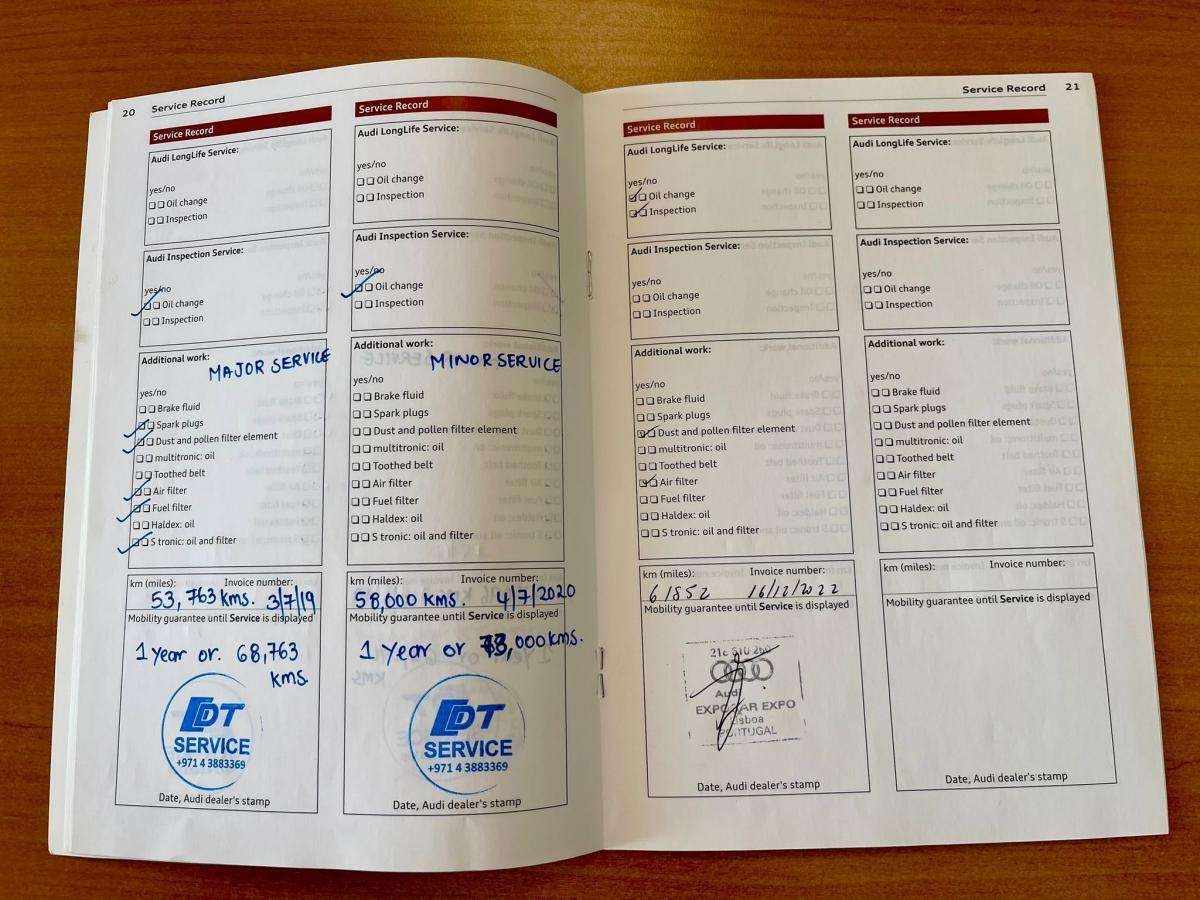 20 Service Record
Service Record
Audi LongLife Service:
yes/no
❑ ❑ Oil change
❑ ❑ Inspection
Audi Inspection Service:
yes/no
❑ ❑ Oil change
❑ ❑ Inspection
Additional work:
MAJOR SERVICE
yes/no
❑ ❑ Brake fluid
❑ ❑ Spark plugs
❑ ❑ Dust and pollen filter element
❑ ❑ multitronic: oil
❑ ❑ Toothed belt
❑ ❑ Air filter
❑ ❑ Fuel filter
❑ ❑ Haldex: oil
❑ ❑ S tronic: oil and filter
km (miles): Invoice number:
53,763 kms. 3/7/19
Mobility guarantee until Service is displayed
1 Year or. 68,763
kms.
EDT
SERVICE
+971 4 3883369
Date, Audi dealer's stamp
Service Record
Audi LongLife Service:
yes/no
❑ ❑ Oil change
❑ ❑ Inspection
Audi Inspection Service:
yes/no
❑ ❑ Oil change
❑ ❑ Inspection
Additional work:
MINOR SERVICE
yes/no
❑ ❑ Brake fluid
❑ ❑ Spark plugs
❑ ❑ Dust and pollen filter element
❑ ❑ multitronic: oil
❑ ❑ Toothed belt
❑ ❑ Air filter
❑ ❑ Fuel filter
❑ ❑ Haldex: oil
❑ ❑ S tronic: oil and filter
km (miles): Invoice number:
58,000 KMS. 4/7/2020
Mobility guarantee until Service is displayed
1 Year or 73,000 kms.
EDT
SERVICE
+971 4 3883369
Date, Audi dealer's stamp
Service Record 21
Service Record
Audi LongLife Service:
yes/no
❑ ❑ Oil change
❑ ❑ Inspection
Audi Inspection Service:
yes/no
❑ ❑ Oil change
❑ ❑ Inspection
Additional work:
yes/no
❑ ❑ Brake fluid
❑ ❑ Spark plugs
❑ ❑ Dust and pollen filter element
❑ ❑ multitronic: oil
❑ ❑ Toothed belt
❑ ❑ Air filter
❑ ❑ Fuel filter
❑ ❑ Haldex: oil
❑ ❑ S tronic: oil and filter
km (miles): Invoice number:
61852 16/12/2022
Mobility guarantee until Service is displayed
Audi
EXPO
Lisboa
PORTUGAL
Date, Audi dealer's stamp
Service Record
Audi LongLife Service:
yes/no
❑ ❑ Oil change
❑ ❑ Inspection
Audi Inspection Service:
yes/no
❑ ❑ Oil change
❑ ❑ Inspection
Additional work:
yes/no
❑ ❑ Brake fluid
❑ ❑ Spark plugs
❑ ❑ Dust and pollen filter element
❑ ❑ multitronic: oil
❑ ❑ Toothed belt
❑ ❑ Air filter
❑ ❑ Fuel filter
❑ ❑ Haldex: oil
❑ ❑ S tronic: oil and filter
km (miles): Invoice number:
Mobility guarantee until Service is displayed
Date, Audi dealer's stamp